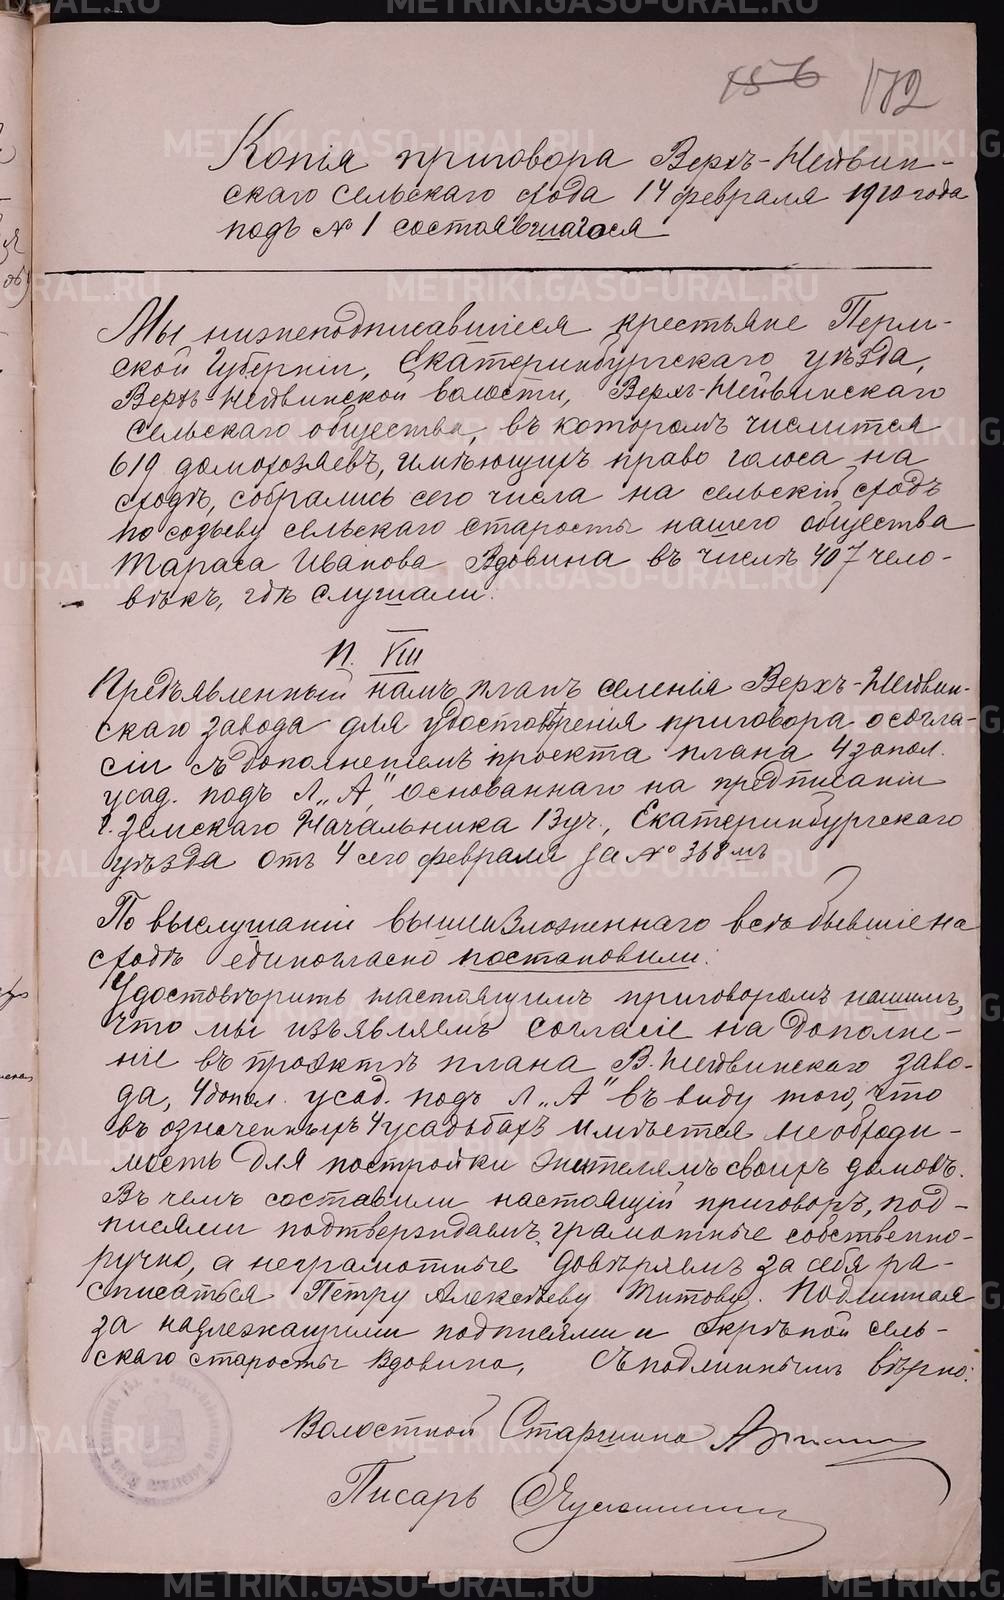 156 172
Копія приговора Верхъ-Нейвин-
скаго сельскаго схода 14 февраля 1910 года
подъ № 1 состоявшагося
Мы нижеподписавшіеся крестьяне Перм-
ской Губерніи, Екатеринбургскаго уѣзда,
Верхъ-Нейвинской волости, Верхъ-Нейвинскаго
сельскаго общества, въ которомъ числится
619 домохозяевъ, имѣющихъ право голоса на
сходѣ, собрались сего числа на сельскій сходъ
по созыву сельскаго старосты нашего общества
Тараса Иванова Вдовина въ числѣ 407 чело-
вѣкъ, гдѣ слушали:
П. VIII
Предъявленный намъ планъ селенія Верхъ-Нейвин-
скаго завода для удостовѣренія приговора о согла-
сіи съ дополненіемъ проекта плана 4 запол.
усад. подъ Л. „А", основаннаго на предписаніи
г. Земскаго Начальника 13 уч., Екатеринбургскаго
уѣзда отъ 4 сего февраля за № 368мъ
По выслушаніи вышеизложеннаго всѣ бывшіе на
сходѣ единогласно постановили:
Удостовѣрить настоящимъ приговоромъ нашимъ,
что мы изъявляемъ согласіе на дополне-
ніе въ проэктѣ плана В. Нейвинскаго заво-
да, 4 допол. усад. подъ Л. „А" въ виду того, что
въ означенныхъ 4 усадьбахъ имѣется необходи-
мость для постройки жителямъ своихъ домовъ.
Въ чемъ составили настоящій приговоръ, под-
писями подтверждаемъ, грамотные собственно-
ручно, а неграмотные довѣряемъ за себя ра-
списаться Петру Алексѣеву Титову. Подлинная
за надлежащими подписями и скрѣпой сель-
скаго старосты Вдовина, Съ подлиннымъ вѣрно:
Волостной Старшина
Писарь
METRIKI.GASO-URAL.RU